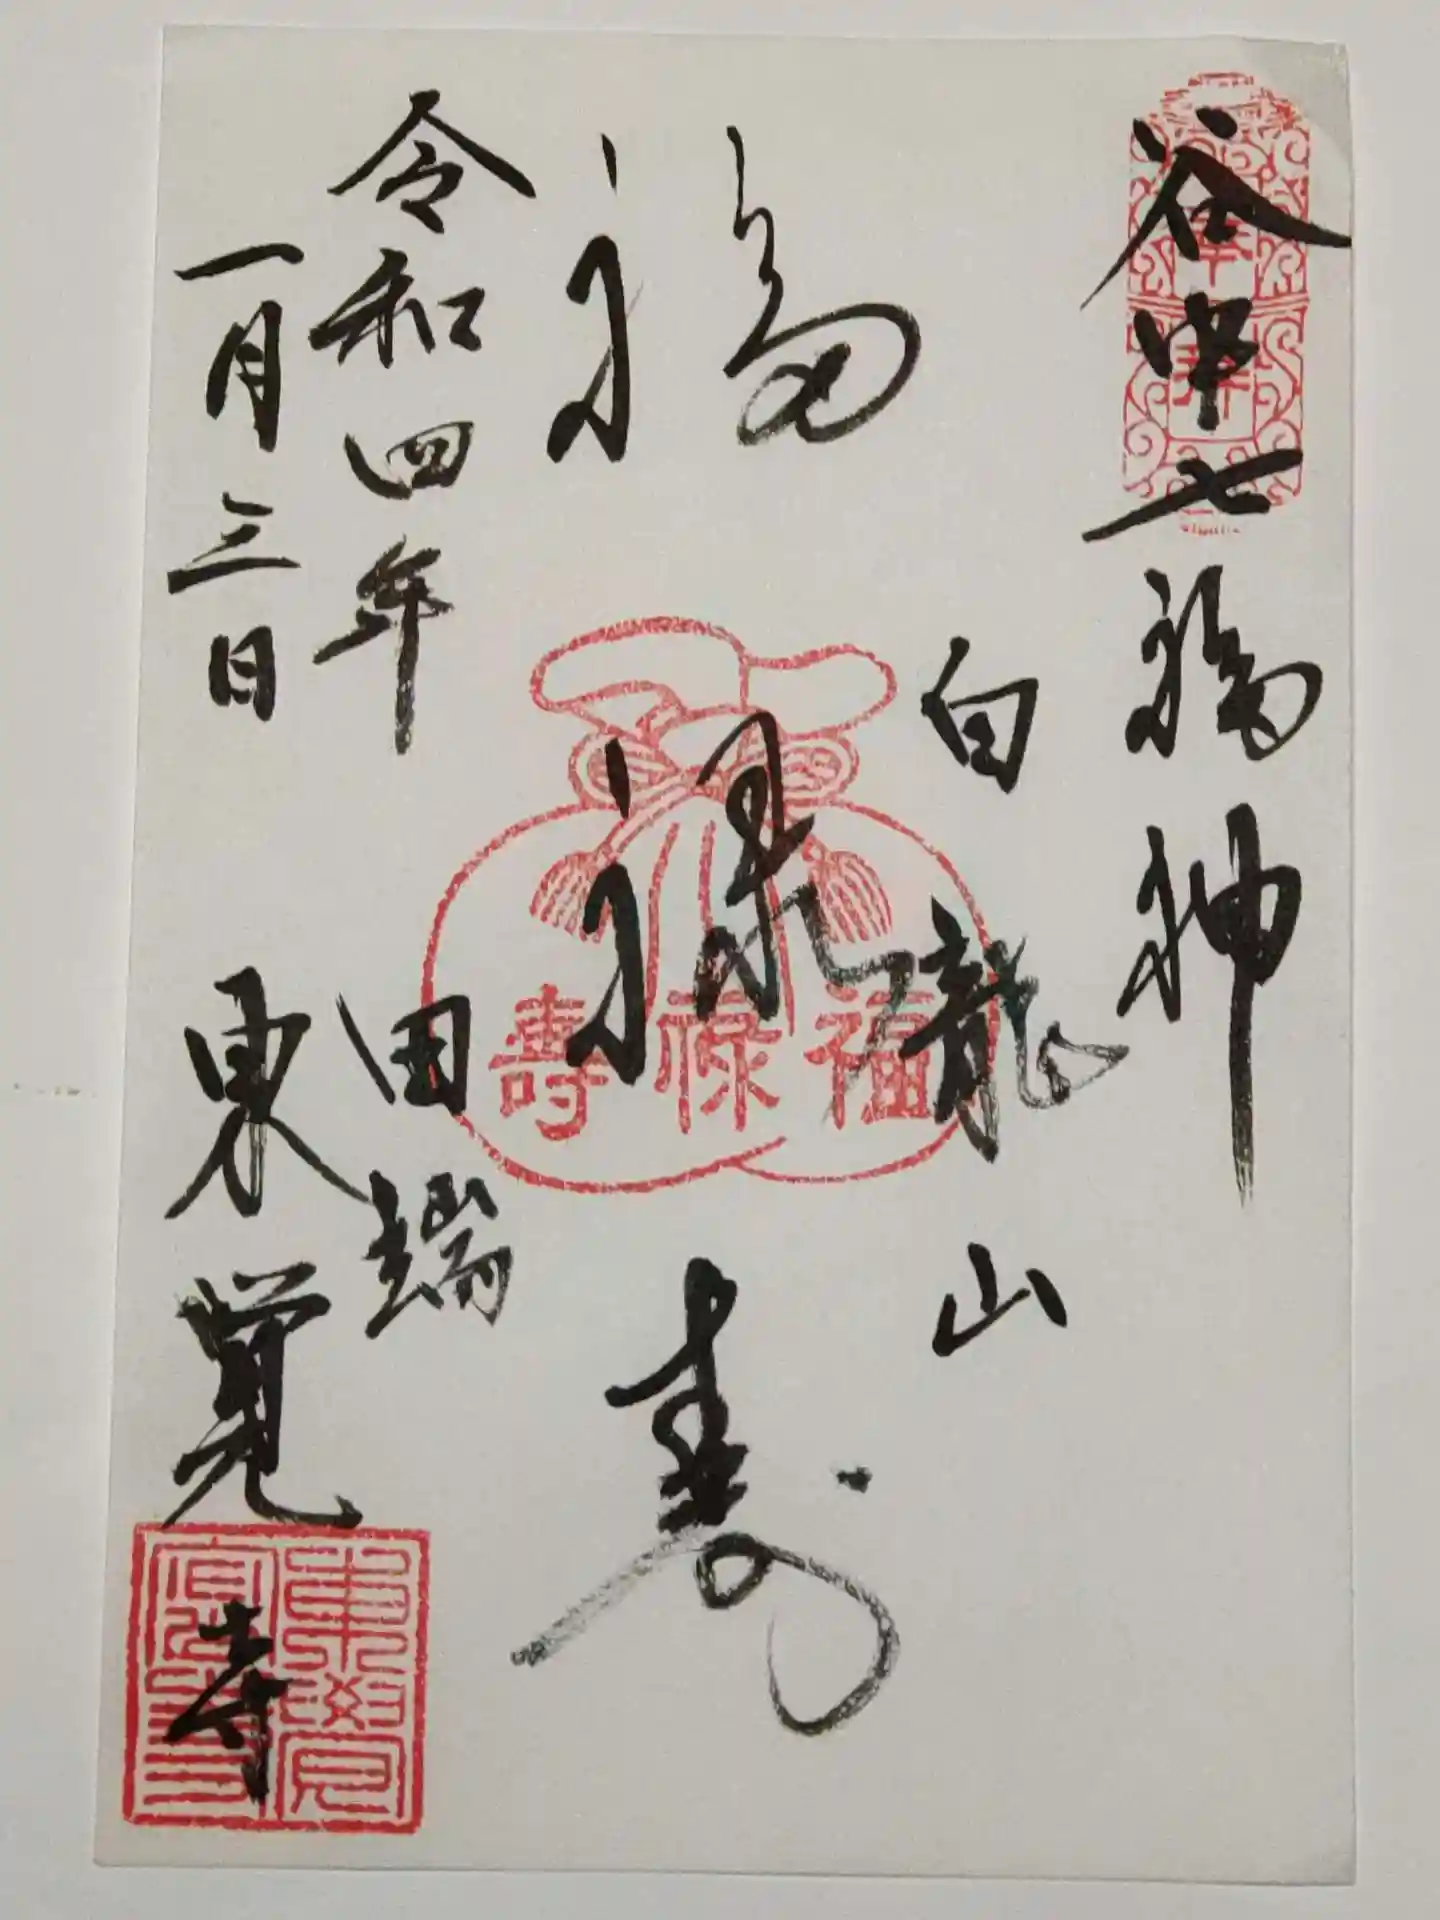 谷中七福神
奉拝
白龍山
福禄寿
福禄壽
令和四年
一月三日
田端
東覚寺